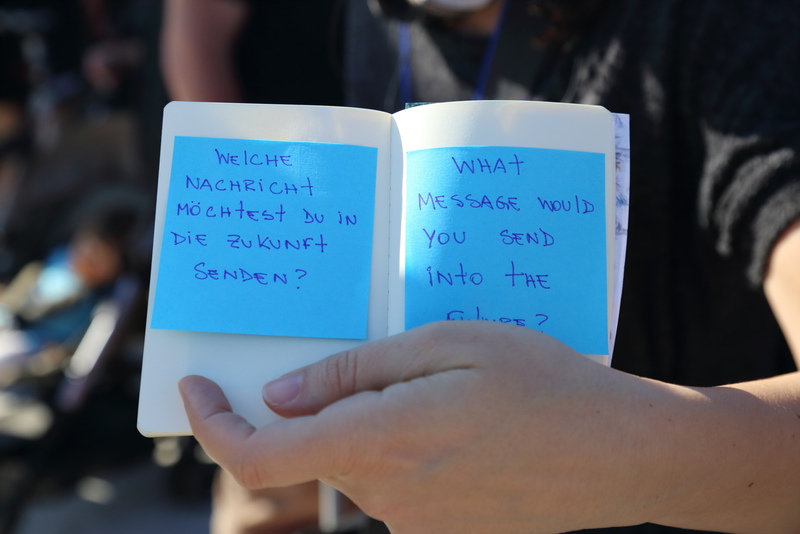 WElCHE
NACHRiCHt
MÖCHtEST DU iN
DiE ZUKUNFt
SENDEN?
WHAt
MESSAGE WOUlD
YOU SEND
iNtO tHE
FUtURE?